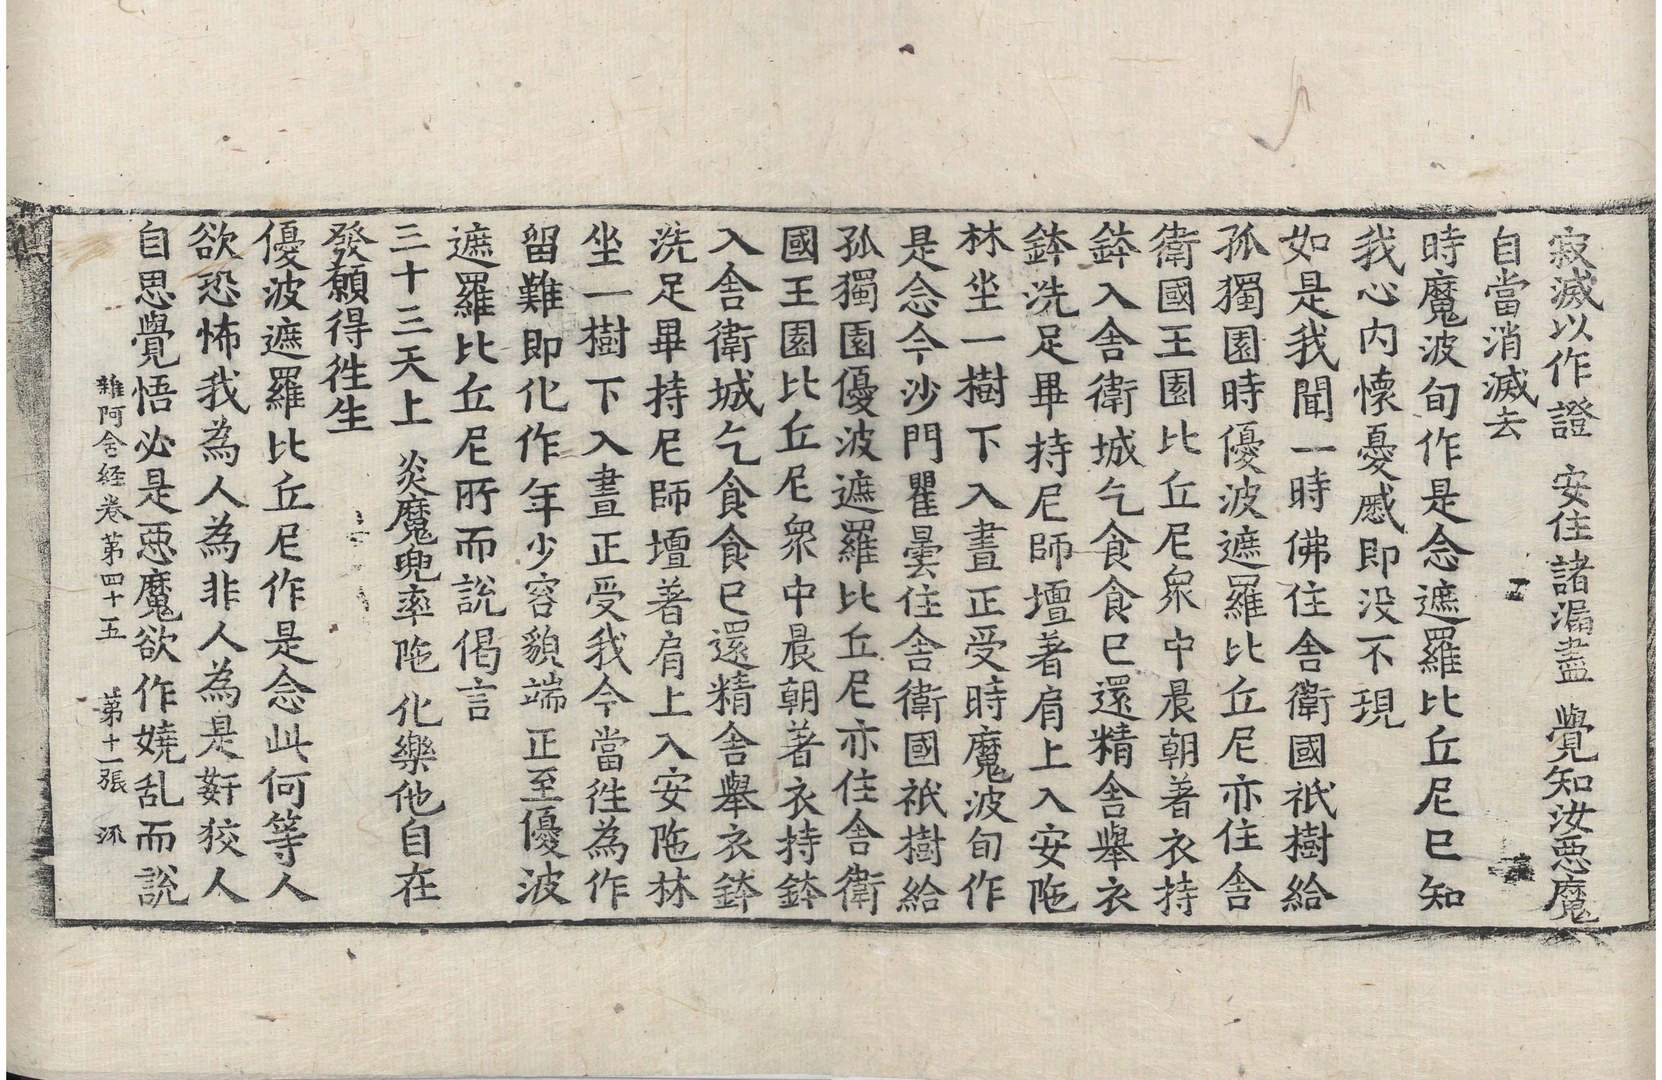 寂滅以作證　安住諸漏盡　覺知汝惡魔
自當消滅去
時魔波旬作是念遮羅比丘尼已知
我心内懷憂慼即没不現
如是我聞一時佛住舍衛國祇樹給
孤獨園時優波遮羅比丘尼亦住舍
衛國王園比丘尼衆中晨朝著衣持
鉢入舍衛城乞食食已還精舍舉衣
鉢洗足畢持尼師壇著肩上入安陁
林坐一樹下入晝正受時魔波旬作
是念今沙門瞿曇住舍衛國祇樹給
孤獨園優波遮羅比丘尼亦住舍衛
國王園比丘尼衆中晨朝著衣持鉢
入舍衛城乞食食已還精舍舉衣鉢
洗足畢持尼師壇著肩上入安陁林
坐一樹下入晝正受我今當徃為作
留難即化作年少容貌端正至優波
遮羅比丘尼所而說偈言
三十三天上　炎魔兜率陁　化樂他自在
發願得徃生
優波遮羅比丘尼作是念此何等人
欲恐怖我為人為非人為是姧狡人
自思覺悟必是惡魔欲作嬈乱而說
雜阿含経卷第四十五　第十一張